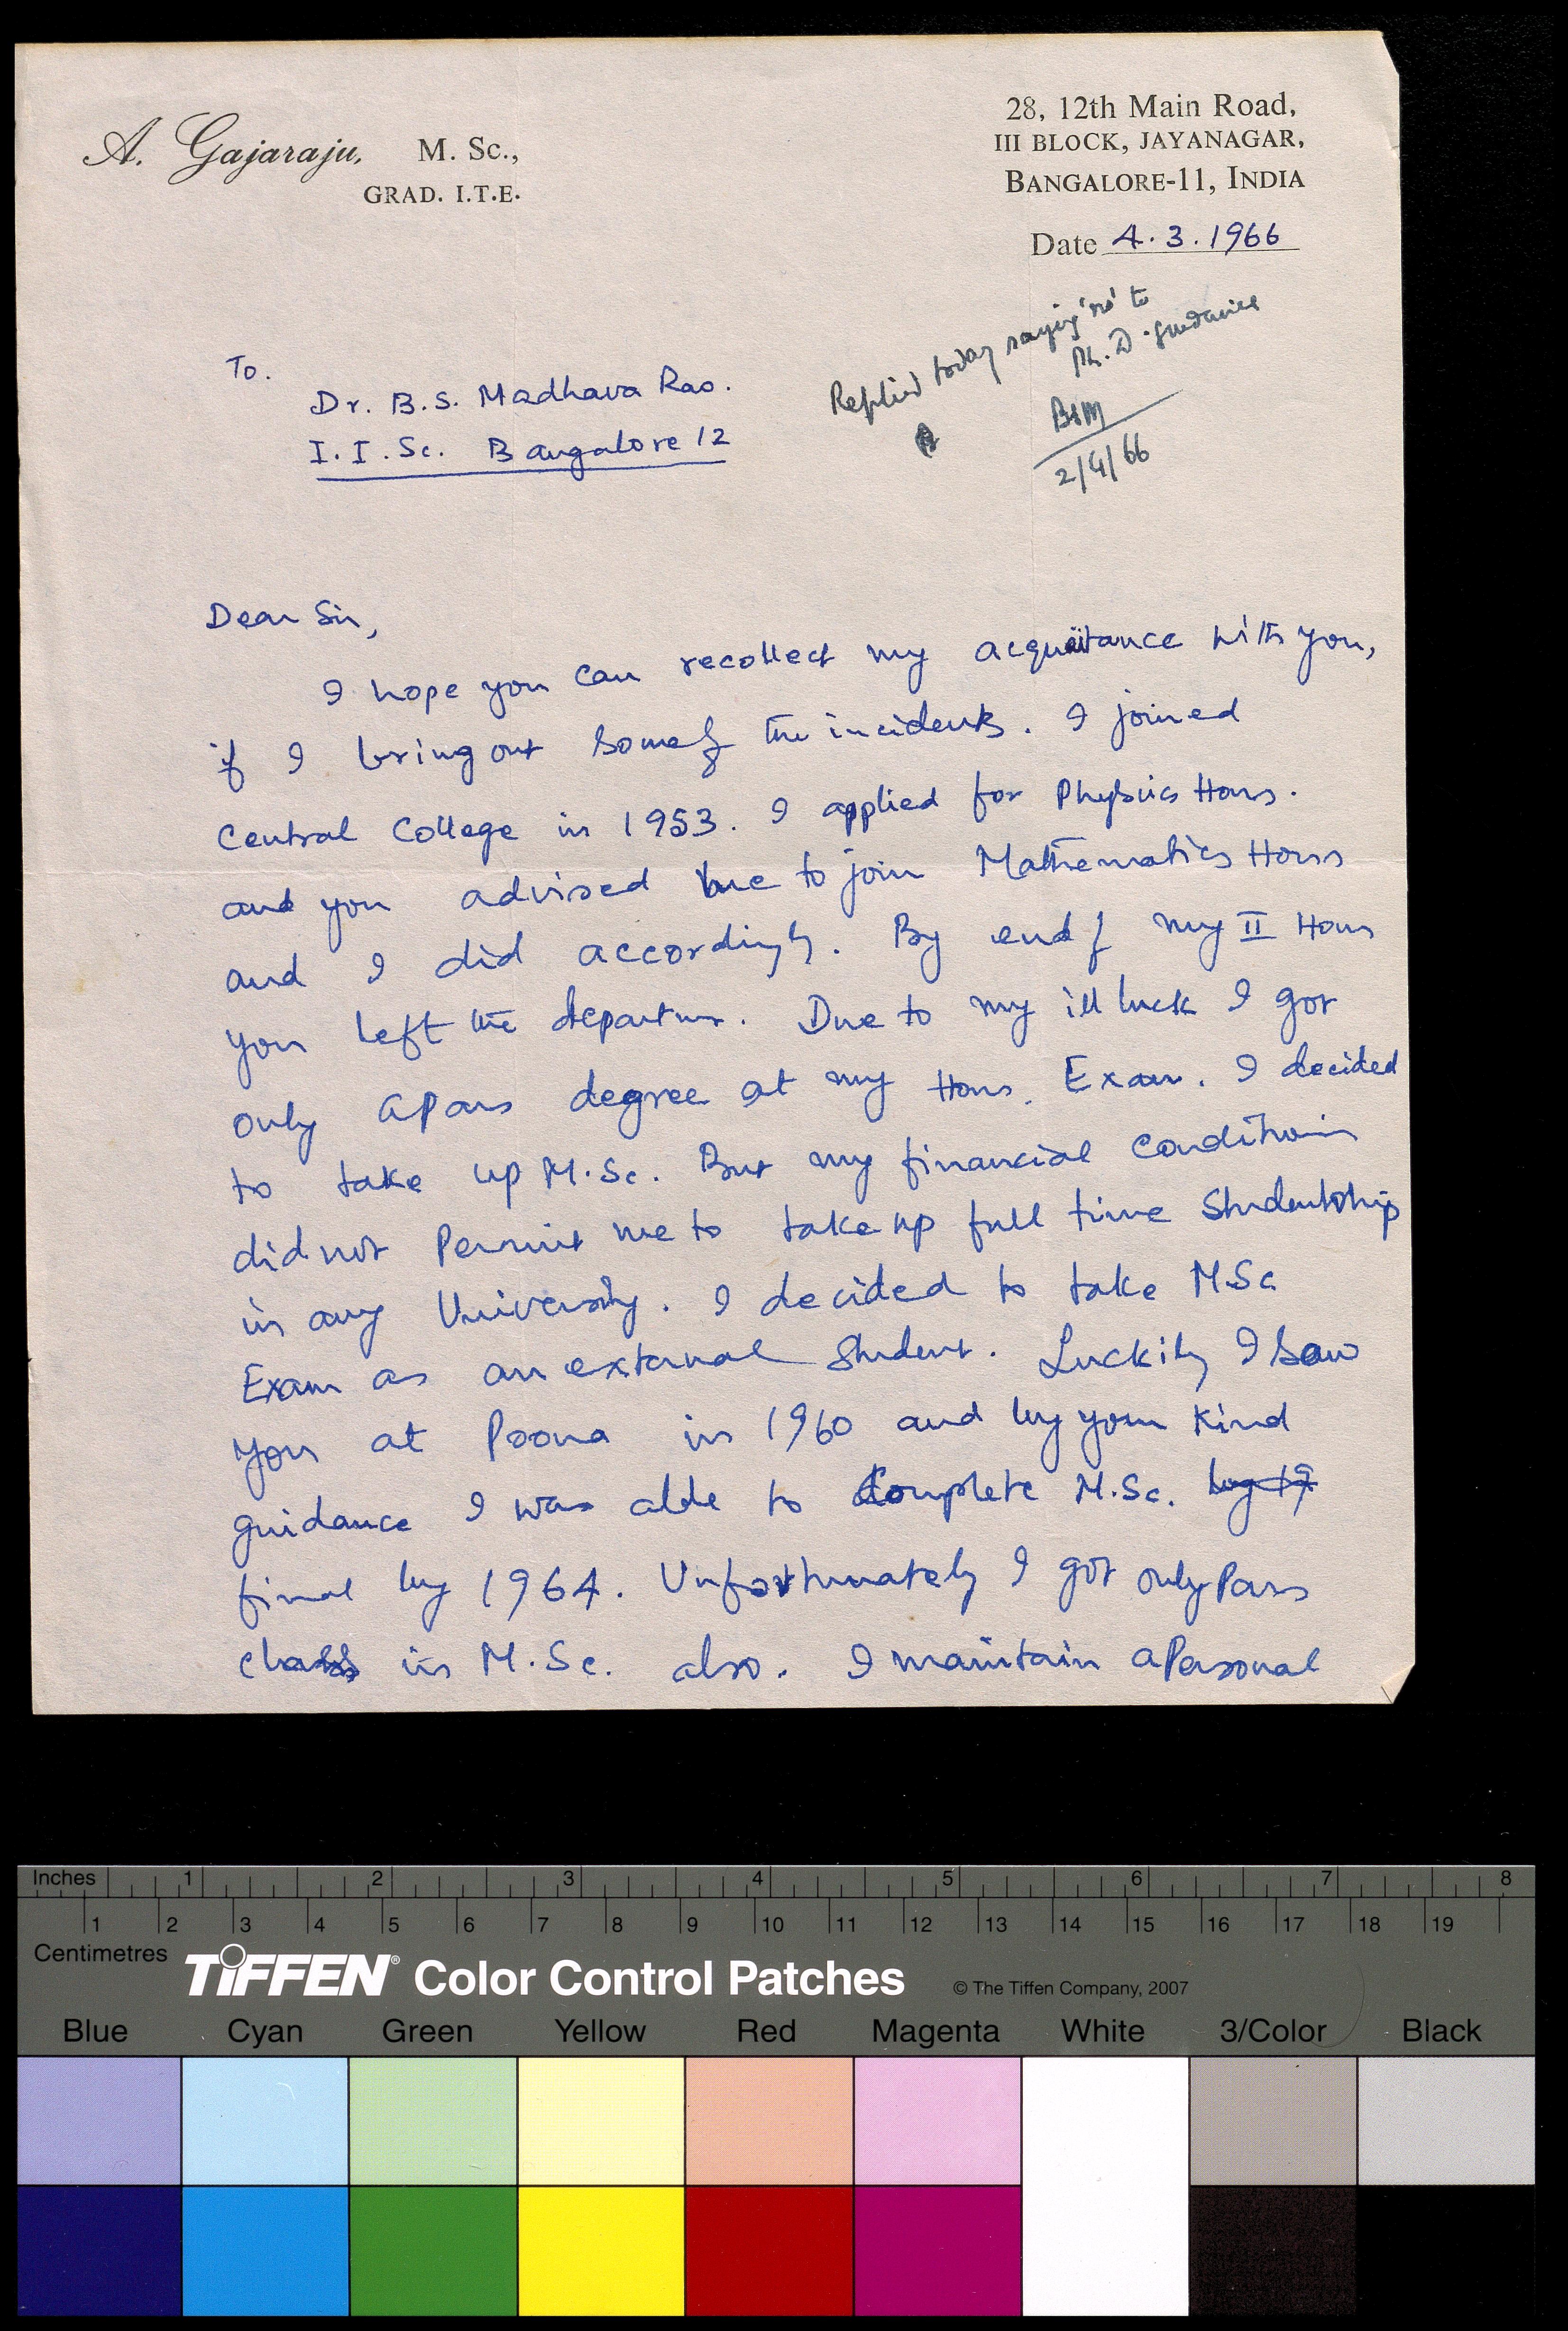 A. Gajaraju, M. Sc.,
GRAD. I.T.E.
28, 12th Main Road,
III BLOCK, JAYANAGAR,
BANGALORE-11, INDIA
Date 4.3.1966
Replied today saying 'no' to
Ph.D. guidance
BSM
2/4/66
To.
Dr. B.S. Madhava Rao.
I.I.Sc. Bangalore 12
Dear Sir,
I hope you can recollect my acquaitance with you,
if I bring out some of the incidents. I joined
Central College in 1953. I applied for Physics Hons.
and you advised me to join Mathematics Hons
and I did accordingly. By end of my II Hons
you left the department. Due to my ill luck I got
only a Pass degree at my Hons. Exam. I decided
to take up M.Sc. But my financial conditions
did not Permit me to take up full time Studentship
in any University. I decided to take M.Sc
Exam as an external Student. Luckily I saw
you at Poona in 1960 and by your kind
guidance I was able to Complete M.Sc. by 19
final by 1964. Unfortunately I got only Pass
class in M.Sc. also. I maintain a Personal
Inches 1 2 3 4 5 6 7 8
1 2 3 4 5 6 7 8 9 10 11 12 13 14 15 16 17 18 19
Centimetres
TIFFEN® Color Control Patches © The Tiffen Company, 2007
Blue Cyan Green Yellow Red Magenta White 3/Color Black